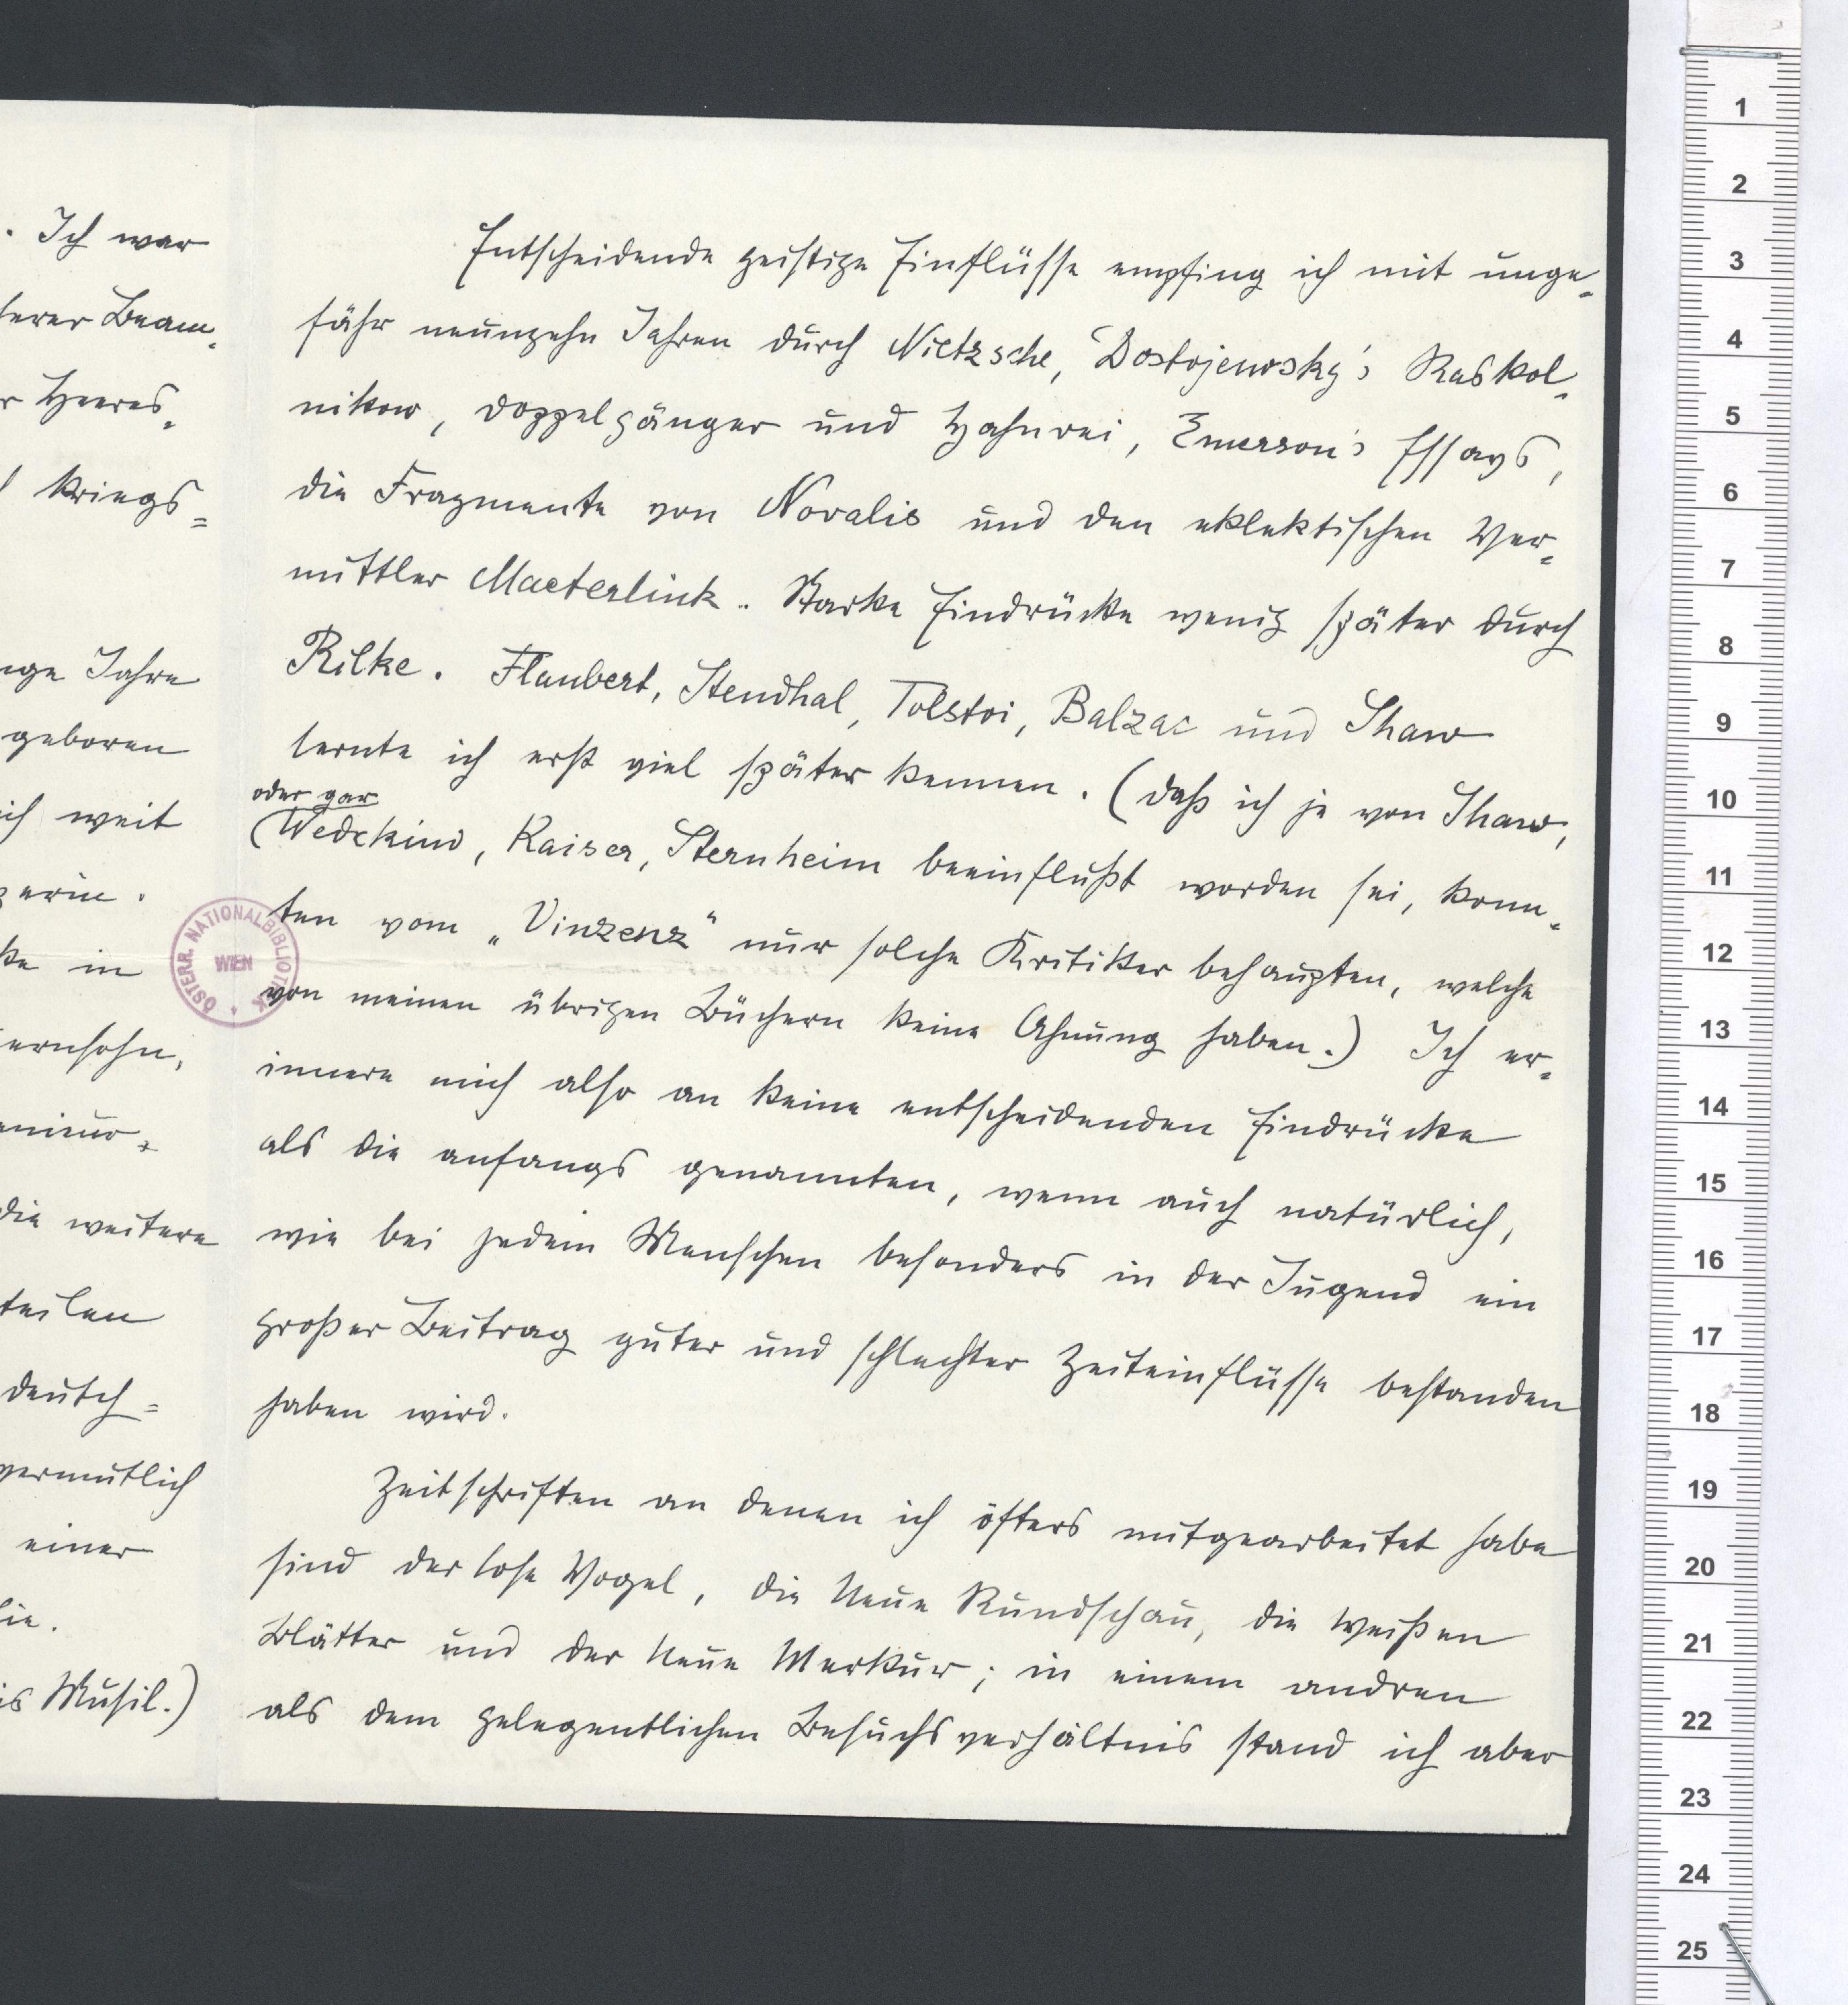 . Ich war
terer Beam-
r Heeres-
l Kriegs=
nge Jahre
geboren
ich weit
zerin.
ke in
ernsohn,
die weitere
teilen
deutsch=
vermutlich
einer
is Musil.)
Entscheidende geistige Einflüsse empfing ich mit unge-
fähr neunzehn Jahren durch Nietzsche, Dostojewsky's Raskol-
nikow, Doppelgänger und Hahnrei, Emerson's Essays,
die Fragmente von Novalis und den eklektischen Ver-
mittler Maeterlink. Starke Eindrücke wenig später durch
Rilke. Flaubert, Stendhal, Tolstoi, Balzac und Shaw
lernte ich erst viel später kennen. (Daß ich je von Shaw,
oder gar
(Wedekind, Kaiser, Sternheim beeinflußt worden sei, konn-
ten vom „Vinzenz" nur solche Kritiker behaupten, welche
von meinen übrigen Büchern keine Ahnung haben.) Ich er-
innere mich also an keine entscheidenden Eindrücke
als die anfangs genannten, wenn auch natürlich,
wie bei jedem Menschen besonders in der Jugend ein
großer Beitrag guter und schlechter Zeiteinflüsse bestanden
haben wird.
Zeitschriften an denen ich öfters mitgearbeitet habe
sind der lose Vogel, die Neue Rundschau, die Weißen
Blätter und der Neue Merkur; in einem andren
als dem gelegentlichen Besuchsverhältnis stand ich aber
ÖSTERR. NATIONALBIBLIOTHEK
WIEN
1
2
3
4
5
6
7
8
9
10
11
12
13
14
15
16
17
18
19
20
21
22
23
24
25